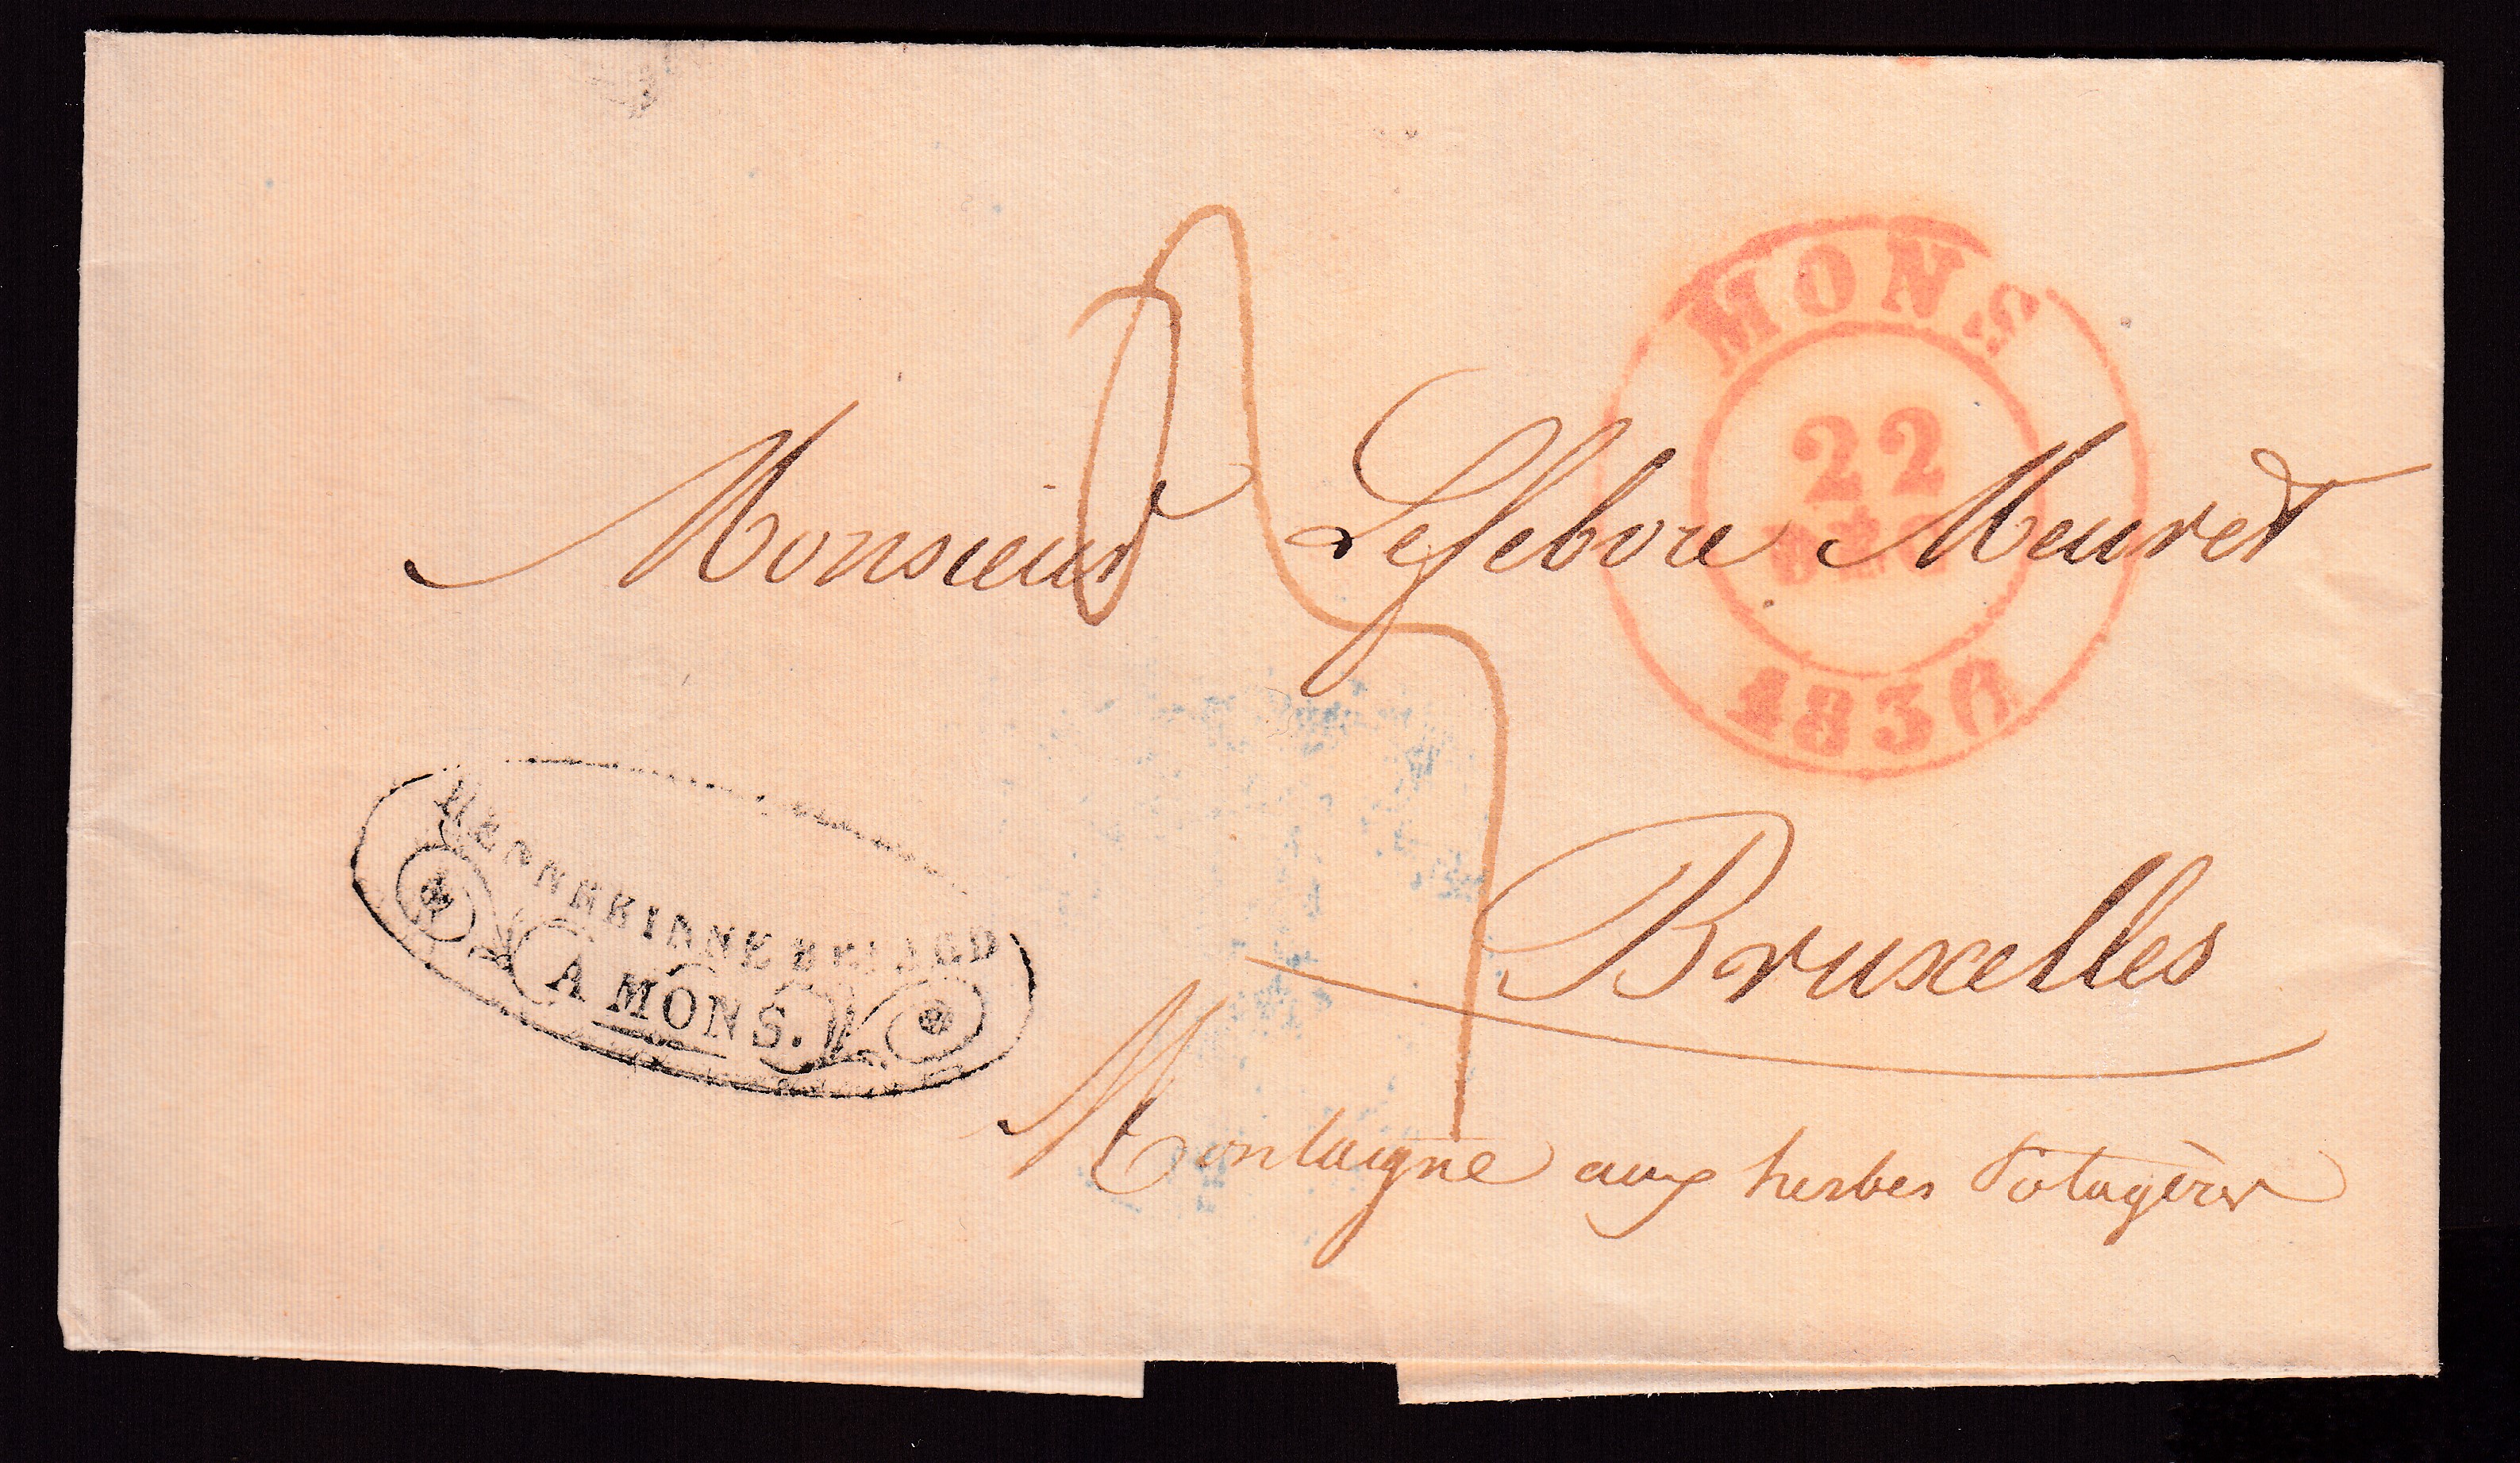 MONS
22
DEC
1830
Monsieur Lefebvre Meuret
Bruxelles
Montaigne aux herbes Potagères
A MONS.